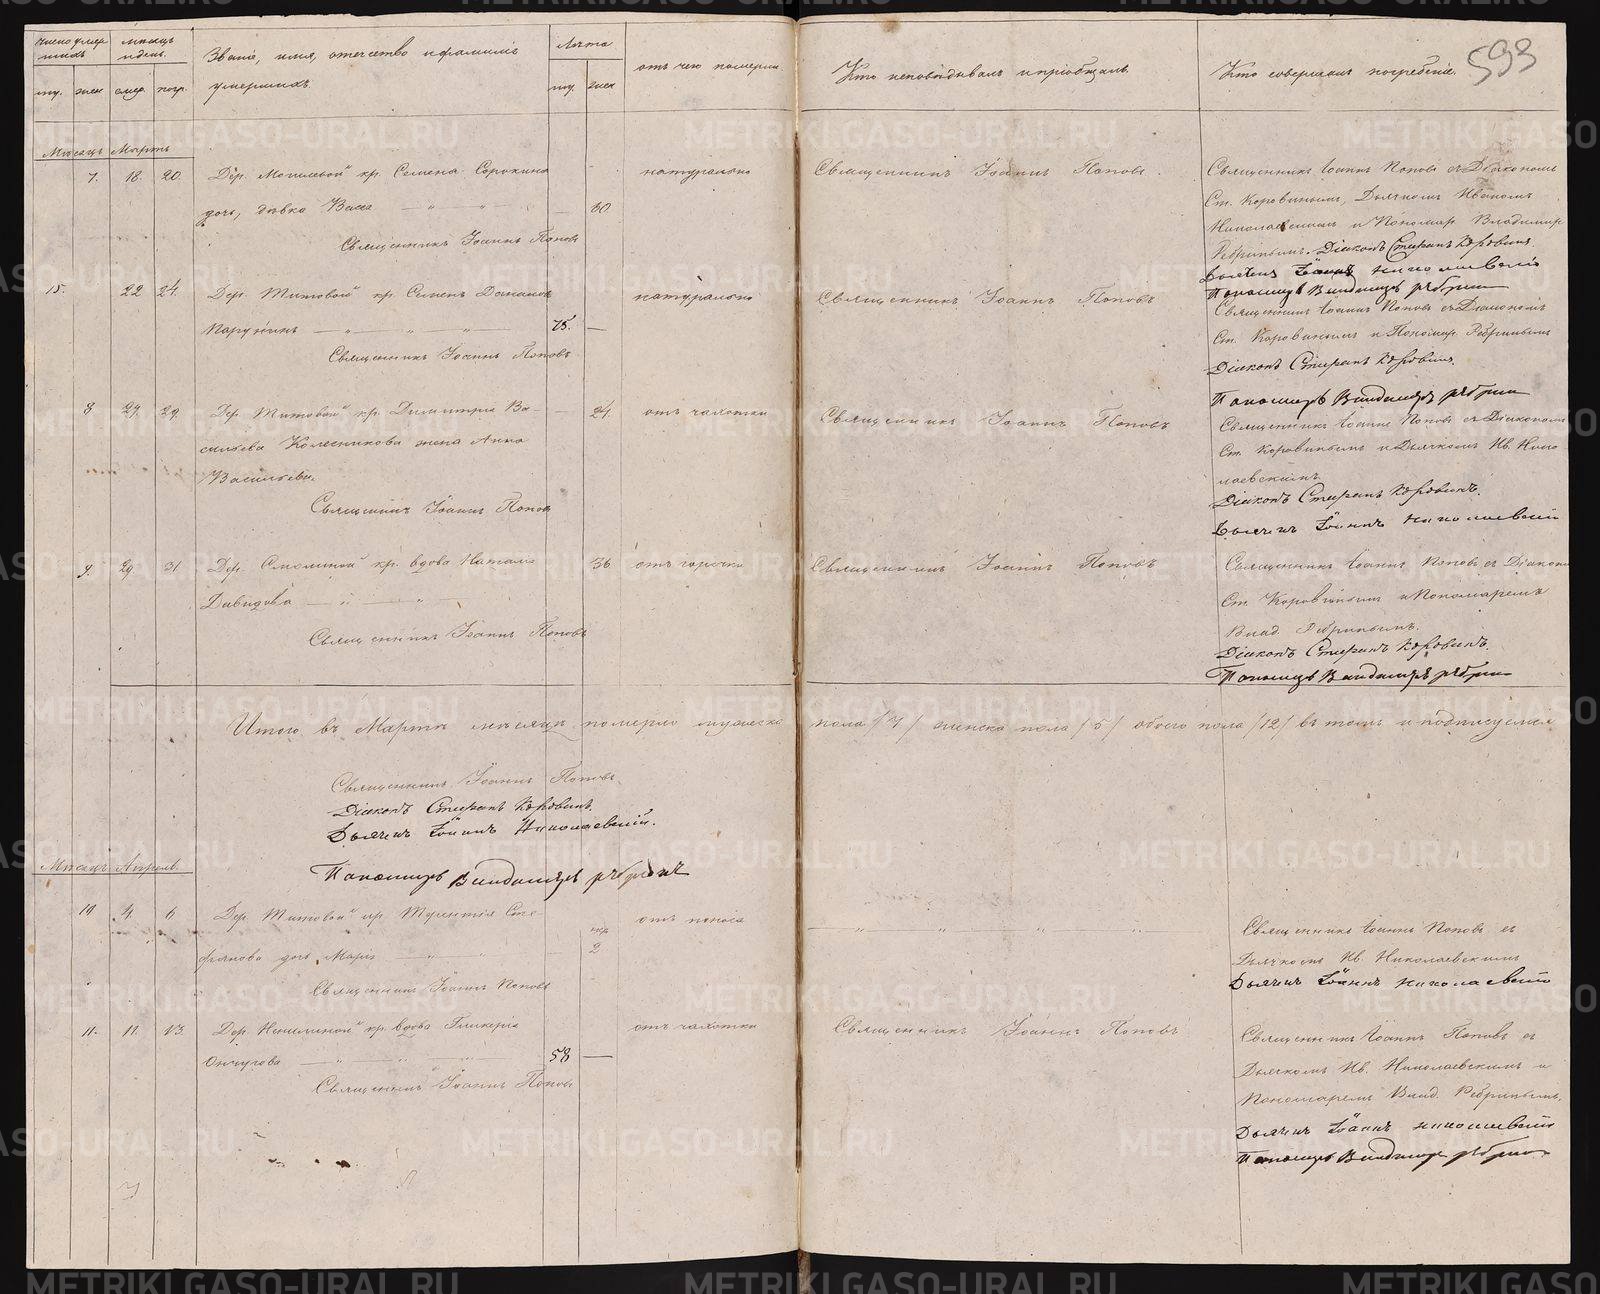 Число умер
шихъ
мѣсяцъ
и день.
Званіе, имя, отчество и фамилія
умершихъ
Лѣта
отъ чего померли
Кто исповѣдывалъ и пріобщалъ.
Кто совершалъ погребеніе.
593
му. жен умер. погр.
му. жен
Мѣсяцъ Мартъ
7. 18. 20.
Дер. Могилевой кр. Семена Сорокина
дочь, дѣвка Васса
60
натурально
Священникъ Іоаннъ Поповъ.
Священникъ Іоаннъ Поповъ
Священникъ Іоаннъ Поповъ съ Діакономъ
Ст. Коровинымъ, Дьячкомъ Иваномъ
Николаевскимъ и Пономар. Владимир
Ребринымъ. Діаконъ Стефанъ Коровинъ
Дьячекъ Іоаннъ Николаевскій
Пономарь Владимиръ Ребринъ
15. 22 24.
Дер. Титовой кр. Семенъ
75.
натурально
Священникъ Іоаннъ Поповъ
Священникъ Іоаннъ Поповъ
Священникъ Іоаннъ Поповъ съ Діакономъ
Ст. Коровинымъ и Пономар. Ребринымъ
Діаконъ Стефанъ Коровинъ
Пономарь Владимиръ Ребринъ
8 27. 29.
Дер. Титовой кр. Димитрія Ва-
сильева Колесникова жена Анна
Васильева.
отъ чахотки
Священникъ Іоаннъ Поповъ
Священникъ Іоаннъ Поповъ
Священникъ Іоаннъ Поповъ съ Діакономъ
Ст. Коровинымъ и Дьячкомъ Ив. Нико
лаевскимъ
Діаконъ Стефанъ Коровинъ.
Дьячекъ Іоаннъ Николаевскій
9. 29. 31.
Дер. Смолиной кр. вдова Наталія
Давидова
36
отъ горячки
Священникъ Іоаннъ Поповъ
Священникъ Іоаннъ Поповъ
Священникъ Іоаннъ Поповъ съ Діакономъ
Ст. Коровинымъ и Пономаремъ
Влад. Ребринымъ.
Діаконъ Стефанъ Коровинъ.
Пономарь Владимиръ Ребринъ
Итого въ Мартѣ мѣсяцѣ померло мужеска пола /7/ женска пола /5/ обоего пола /12/ въ томъ и подписуемся
Священникъ Іоаннъ Поповъ
Діаконъ Стефанъ Коровинъ.
Дьячекъ Іоаннъ Николаевскій.
Пономарь Владимиръ Ребринъ
Мѣсяцъ Апрѣль.
10 4. 6
Дер. Титовой кр. Сте-
фанова дочь Марія
2
отъ поноса
Священникъ Іоаннъ Поповъ
Священникъ Іоаннъ Поповъ съ
Дьячкомъ Ив. Николаевскимъ
Дьячекъ Іоаннъ Николаевскій
11. 11. 13.
кр. вдова Гликерія
58
отъ чахотки
Священникъ Іоаннъ Поповъ
Священникъ Іоаннъ Поповъ
Священникъ Іоаннъ Поповъ съ
Дьячкомъ Ив. Николаевскимъ и
Пономаремъ Влад. Ребринымъ.
Дьячекъ Іоаннъ Николаевскій
Пономарь Владимиръ Ребринъ
METRIKI.GASO-URAL.RU